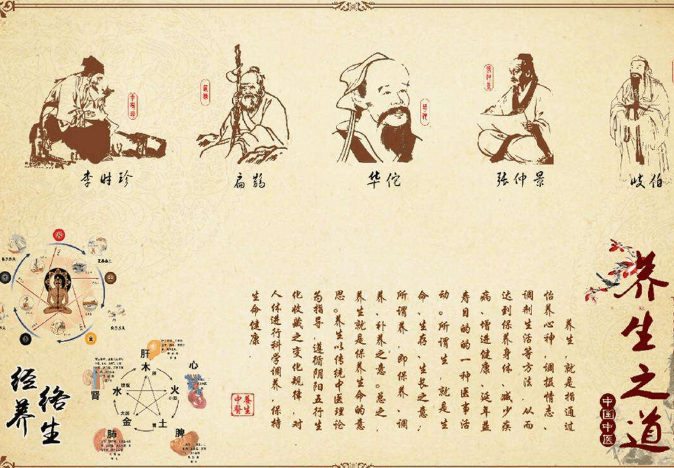 李时珍
扁鹊
华佗
张仲景
岐伯
养生之道
中国中医
养生，就是指通过
怡养心神、调摄情志、
调剂生活等方法，从而
达到保养身体、减少疾
病、增进健康、延年益
寿目的的一种医事活
动。所谓生，就是生
命、生存、生长之意；
所谓养，即保养、调
养、补养之意。总之，
养生就是保养生命的意
思。养生以传统中医理论
为指导，遵循阴阳五行生
化收藏之变化规律，对
人体进行科学调养，保持
生命健康
养生
中醫
经络
养生
肝
木
心
火
小肠
脾
土
肺
金
大肠
肾
水